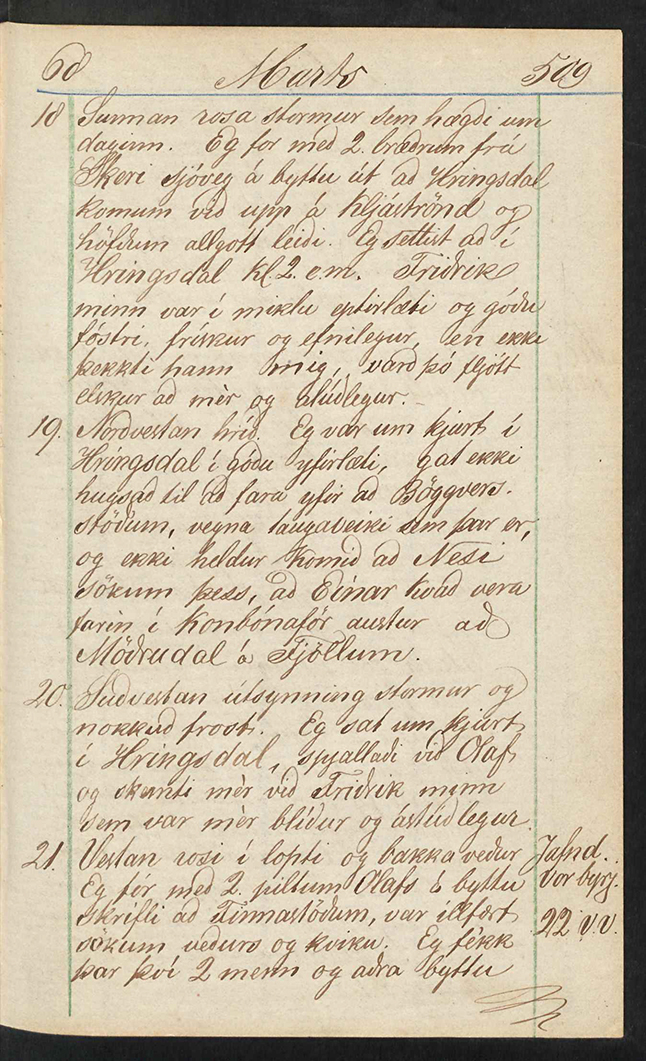 68 Marts 509
18 Sunnan rosa stormur sem hægdi um
daginn. Eg for med 2. brædrum frá
Skeri sjóveg á byttu út ad Hringsdal
komum vid upp á Kljáströnd og
höfdum allgott leidi. Eg settist ad í
Hringsdal Kl. 2. e.m. Friðrik
minn var í miklu eptirlæti og góðu
fóstri, frískur og efnilegur, en ekki
þekkti hann mig, vard þó fljótt
elskur ad mèr og alúðlegur.
19. Nordvestan hríd. Eg var um kjurt í
Hringsdal í góðu yfirlæti, gat ekki
hugsad til ad fara yfir ad Böggvers-
stöðum, vegna taugaveiki sem þar er,
og ekki heldur komid ad Nesi
sökum þess, ad Einar kvad vera
farin í Konbónaför austur að
Möðrudal á Fjöllum.
20. Sudvestan útsynning stormur og
nokkud frost. Eg sat um kjurt
í Hringsdal, spjalladi við Olaf
og skemti mèr við Friðrik minn
sem var mèr blíður og ástúdlegur.
21. Vestan rosi í lopti og bakka vedur Jafnd.
Eg fór med 2. piltum Olafs á byttu Vor byrj.
skrifli ad Finnastöðum, var illfært 22 v.v.
sökum vedurs og kviku. Eg fékk
þar því 2 menn og aðra byttu